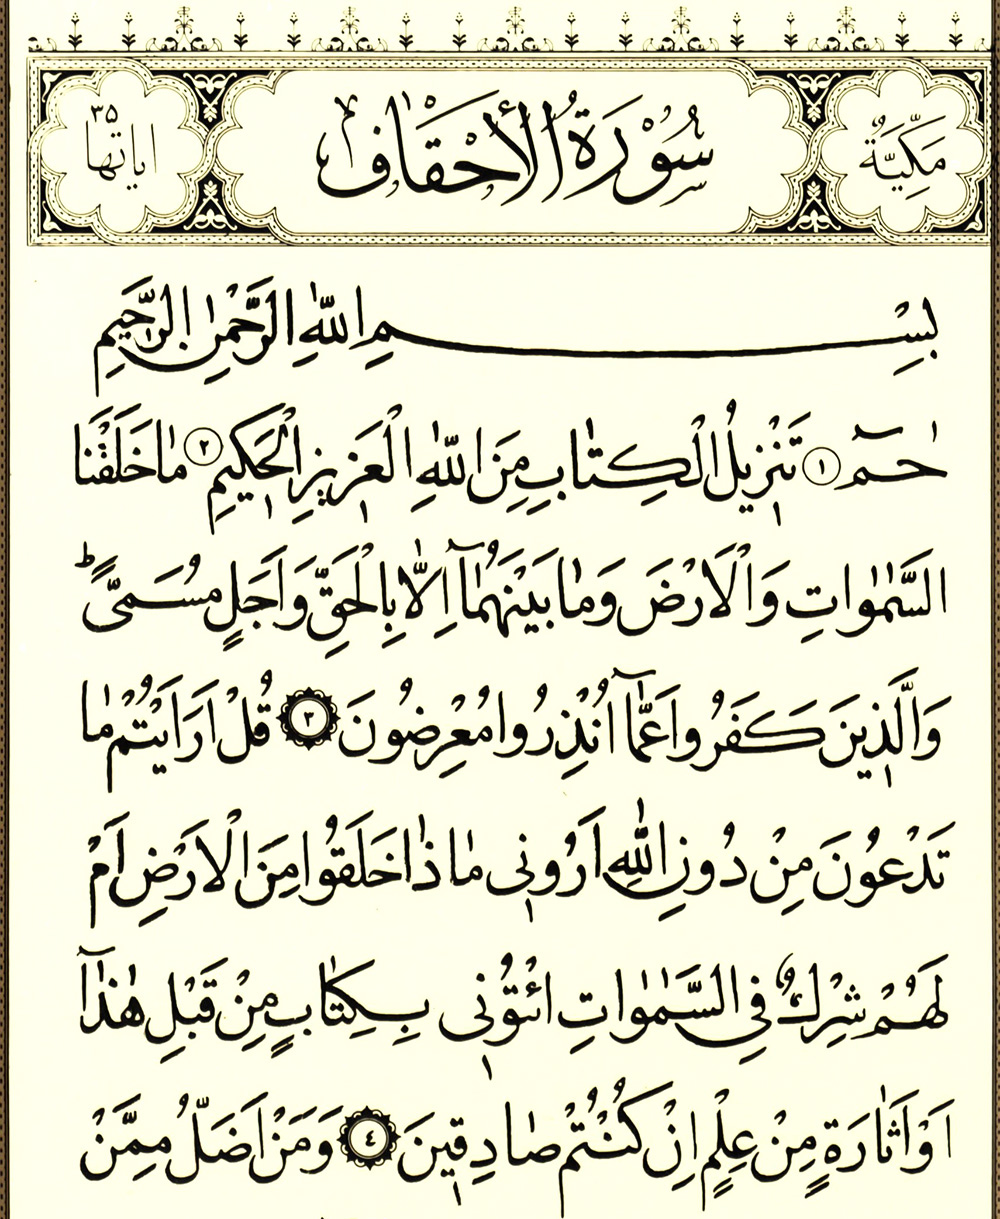 مَكِّيَّةٌ سُورَةُ الْأَحْقَافِ اٰيَاتُهَا ٣٥
بِسْمِ اللّٰهِ الرَّحْمٰنِ الرَّحٖيمِ
حٰمٓ ﴿١﴾ تَنْزٖيلُ الْكِتَابِ مِنَ اللّٰهِ الْعَزٖيزِ الْحَكٖيمِ ﴿٢﴾ مَا خَلَقْنَا
السَّمٰوَاتِ وَالْاَرْضَ وَمَا بَيْنَهُمَٓا اِلَّا بِالْحَقِّ وَاَجَلٍ مُسَمًّىؕ
وَالَّذٖينَ كَفَرُوا عَمَّٓا اُنْذِرُوا مُعْرِضُونَ ﴿٣﴾ قُلْ اَرَاَيْتُمْ مَا
تَدْعُونَ مِنْ دُونِ اللّٰهِ اَرُونٖي مَاذَا خَلَقُوا مِنَ الْاَرْضِ اَمْ
لَهُمْ شِرْكٌ فِي السَّمٰوَاتِ ائْتُونٖي بِكِتَابٍ مِنْ قَبْلِ هٰذَٓا
اَوْ اَثَارَةٍ مِنْ عِلْمٍ اِنْ كُنْتُمْ صَادِقٖينَ ﴿٤﴾ وَمَنْ اَضَلُّ مِمَّنْ